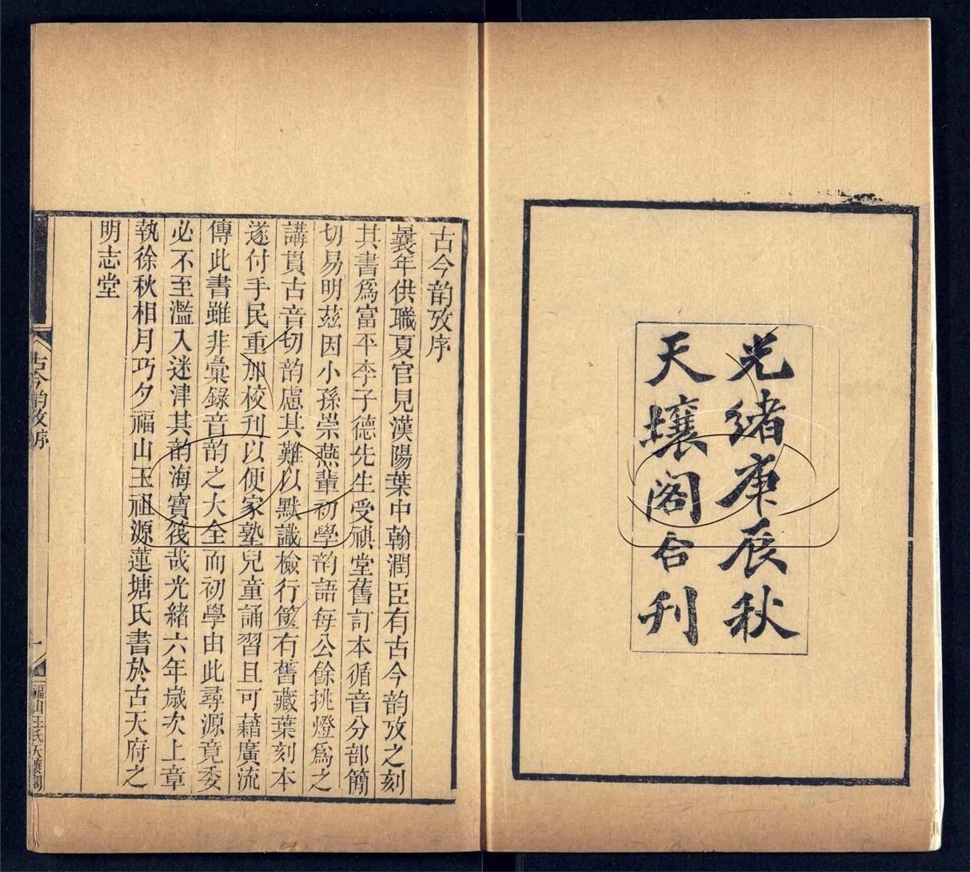 光緒庚辰秋
天壤閣合刋
古今韵攷序
曩年供職夏官見漢陽葉中翰潤臣有古今韵攷之刻
其書爲富平李子德先生受祺堂舊訂本循音分部簡
切易明茲因小孫崇燕輩初學韵語每公餘挑燈爲之
講貫古音切韵慮其難以默識檢行篋有舊藏葉刻本
遂付手民重加校刊以便家塾兒童誦習且可藉廣流
傳此書雖非彙錄音韵之大全而初學由此尋源竟委
必不至濫入迷津其韵海寶筏哉光緒六年歲次上章
執徐秋相月巧夕福山王祖源蓮塘氏書於古天府之
明志堂
古今韵攷序
一
福山王氏天壤閣